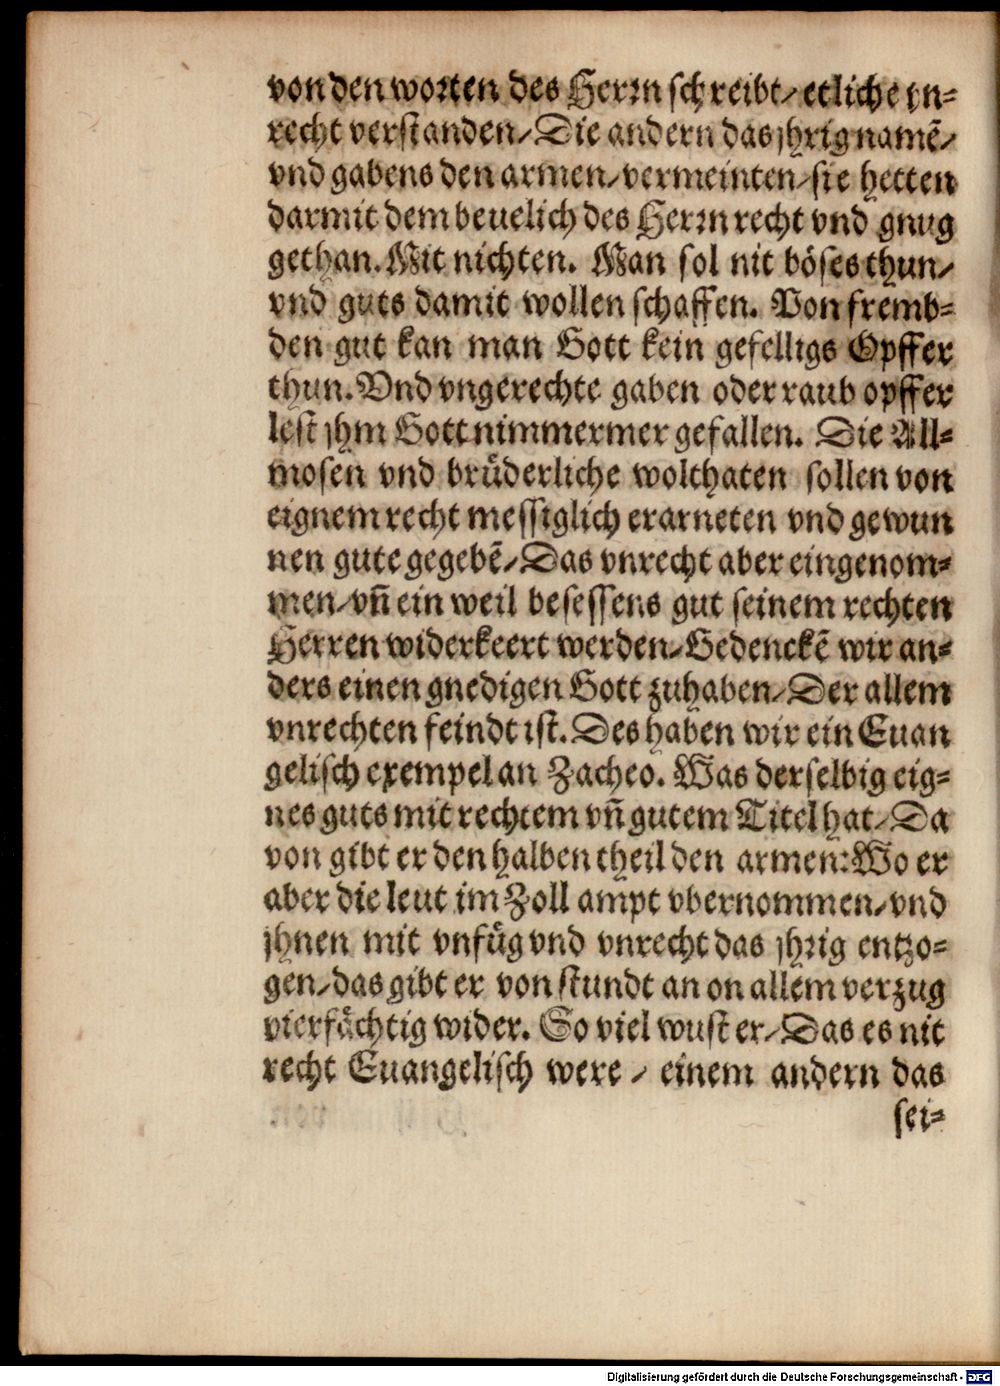 von den worten des Herrn schreibt / etliche vn-
recht verstanden / Die andern das jhrig namē /
vnd gabens den armen / vermeinten / sie hetten
darmit dem beuelich des Herrn recht vnd gnug
gethan. Mit nichten. Man sol nit böses thun /
vnd guts damit wollen schaffen. Von fremb-
den gut kan man Gott kein gefelligs Opffer
thun. Vnd vngerechte gaben oder raub opffer
lest jhm Gott nimmermer gefallen. Die All-
mosen vnd brüderliche wolthaten sollen von
eignem recht messiglich erarneten vnd gewun
nen gute gegebē / Das vnrecht aber eingenom-
men / vn̄ ein weil besessens gut seinem rechten
Herren widerkeert werden / Gedenckē wir an-
ders einen gnedigen Gott zuhaben / Der allem
vnrechten feindt ist. Des haben wir ein Euan
gelisch exempel an Zacheo. Was derselbig eig-
nes guts mit rechtem vn̄ gutem Titel hat / Da
von gibt er den halben theil den armen: Wo er
aber die leut im Zoll ampt vbernommen / vnd
jhnen mit vnfüg vnd vnrecht das jhrig entzo-
gen / das gibt er von stundt an on allem verzug
vierfächtig wider. So viel wust er / Das es nit
recht Euangelisch were / einem andern das
sei-
Digitalisierung gefördert durch die Deutsche Forschungsgemeinschaft - DFG